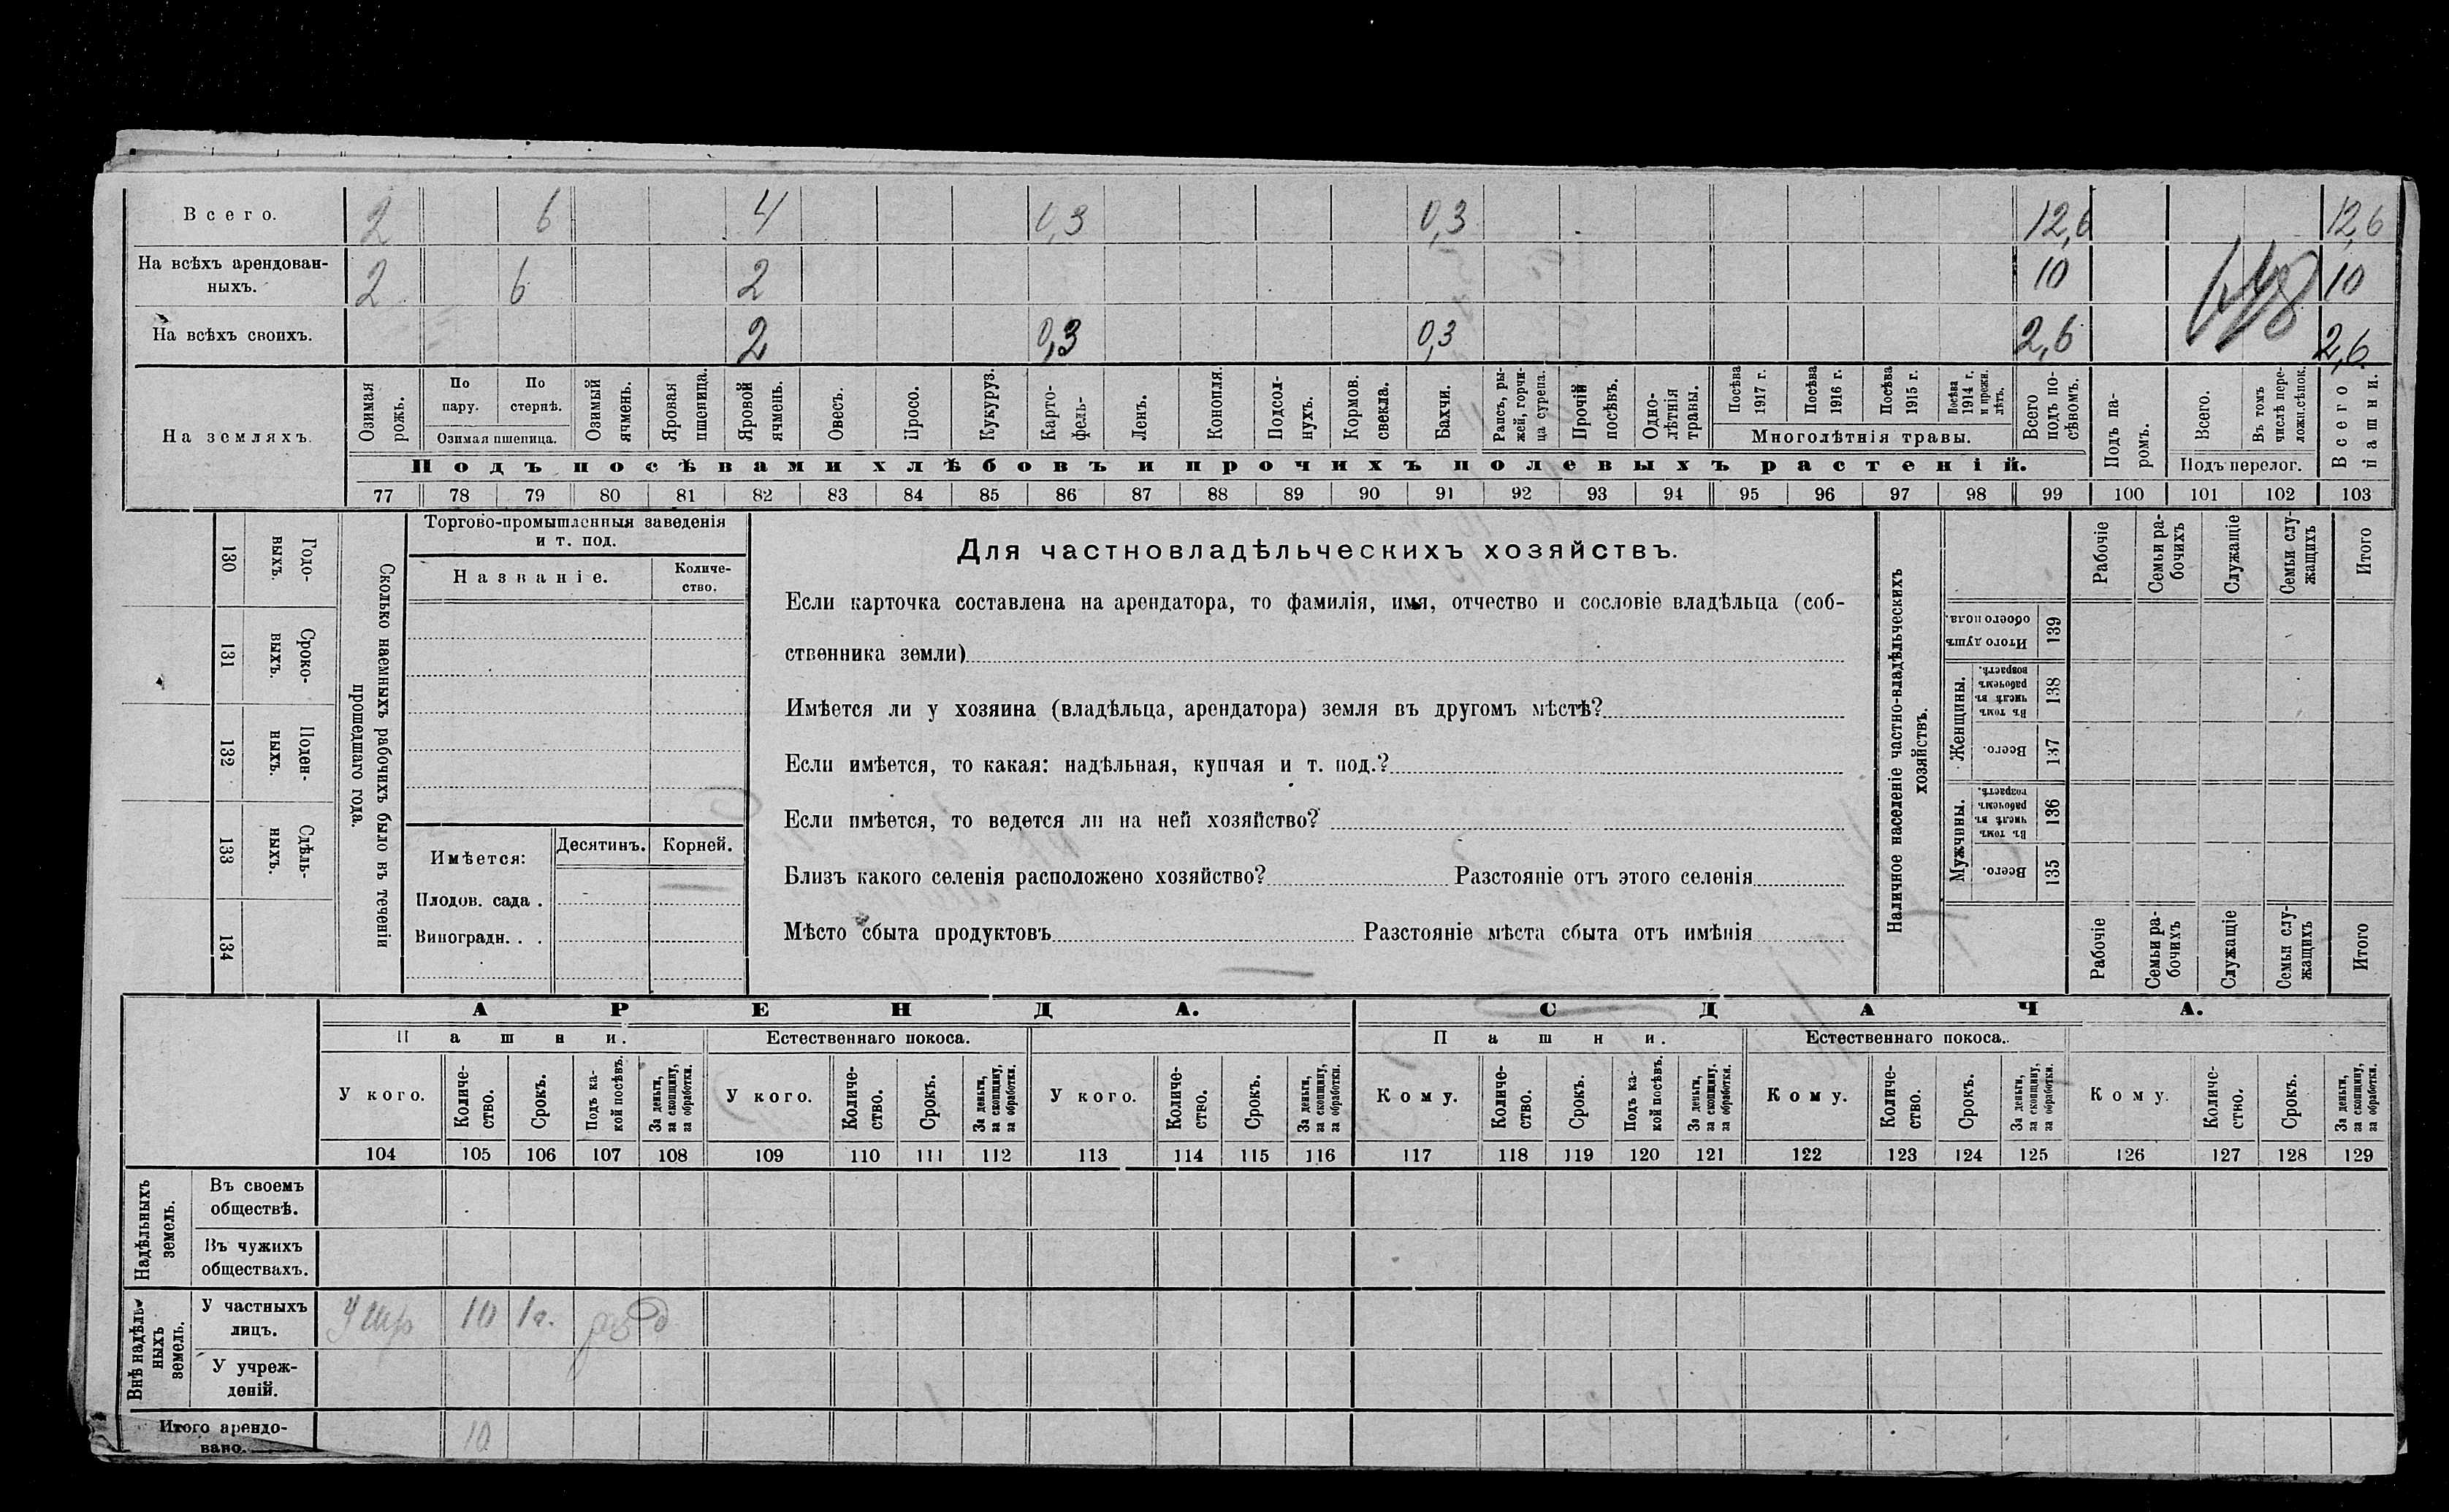 Всего. 2 6 4 0,3 0,3 12,6 12,6
На всѣхъ арендован-
ныхъ. 2 6 2 10 10
На всѣхъ своихъ. 2 0,3 0,3 2,6 2,6
На земляхъ.
Озимая рожь.
По пару.
По стернѣ.
Озимая пшеница.
Озимый ячмень.
Яровая пшеница.
Яровой ячмень.
Овесъ.
Просо.
Кукуруз.
Карто-
фель-
Ленъ.
Конопля.
Подсол-
нухъ.
Кормов. свекла.
Бахчи.
Рапсъ, ры-
жей, горчи-
ца сурепа.
Прочій посѣвъ.
Одно-
лѣтнія травы.
Посѣва 1917 г.
Посѣва 1916 г.
Посѣва 1915 г.
Посѣва 1914 г. и прежн. лѣтъ.
Многолѣтнія травы.
Всего подъ по-
сѣвомъ.
Подъ па-
ромъ.
Всего.
Въ томъ числѣ пере-
ложн.сѣнок.
Подъ перелог.
Всего пашни.
Подъ посѣвами хлѣбовъ и прочихъ полевыхъ растеній.
77 78 79 80 81 82 83 84 85 86 87 88 89 90 91 92 93 94 95 96 97 98 99 100 101 102 103
130 Годо-
выхъ.
131 Сроко-
выхъ.
132 Поден-
ныхъ.
133 Сдѣль-
ныхъ.
134
Сколько наемныхъ рабочихъ было въ теченіи
прошедшаго года.
Торгово-промышленныя заведенія
и т. под.
Названіе.
Количе-
ство.
Имѣется:
Десятинъ.
Корней.
Плодов. сада .
Виноградн. . .
Для частновладѣльческихъ хозяйствъ.
Если карточка составлена на арендатора, то фамилія, имя, отчество и сословіе владѣльца (соб-
ственника земли)
Имѣется ли у хозяина (владѣльца, арендатора) земля въ другомъ мѣстѣ?
Если имѣется, то какая: надѣльная, купчая и т. под.?
Если имѣется, то ведется ли на ней хозяйство?
Близъ какого селенія расположено хозяйство? Разстояніе отъ этого селенія
Мѣсто сбыта продуктовъ Разстояніе мѣста сбыта отъ имѣнія
Наличное населеніе частно-владѣльческихъ
хозяйствъ.
Рабочіе
Семьи ра-
бочихъ
Служащіе
Семьи слу-
жащихъ
Итого
Итого душъ обоего пола. 139
Женщины.
Въ томъ числѣ въ рабочемъ возрастѣ. 138
Всего. 137
Мужчины.
Въ томъ числѣ въ рабочемъ возрастѣ. 136
Всего. 135
Рабочіе
Семьи ра-
бочихъ
Служащіе
Семьи слу-
жащихъ
Итого
АРЕНДА.
СДАЧА.
Пашни.
Естественнаго покоса.
Пашни.
Естественнаго покоса.
У кого.
Количе-
ство.
Срокъ.
Подъ ка-
кой посѣвъ.
За деньги, за скопщину, за обработки.
У кого.
Количе-
ство.
Срокъ.
За деньги, за скопщину, за обработки.
У кого.
Количе-
ство.
Срокъ.
За деньги, за скопщину, за обработки.
Кому.
Количе-
ство.
Срокъ.
Подъ ка-
кой посѣвъ.
За деньги, за скопщину, за обработки.
Кому.
Количе-
ство.
Срокъ.
За деньги, за скопщину, за обработки.
Кому.
Количе-
ство.
Срокъ.
За деньги, за скопщину, за обработки.
104 105 106 107 108 109 110 111 112 113 114 115 116 117 118 119 120 121 122 123 124 125 126 127 128 129
Надѣльныхъ земель.
Въ своемъ
обществѣ.
Въ чужихъ
обществахъ.
Внѣ надѣль-
ныхъ земель.
У частныхъ
лицъ. 10 1 г.
У учреж-
деній.
Итого арендо-
вано. 10